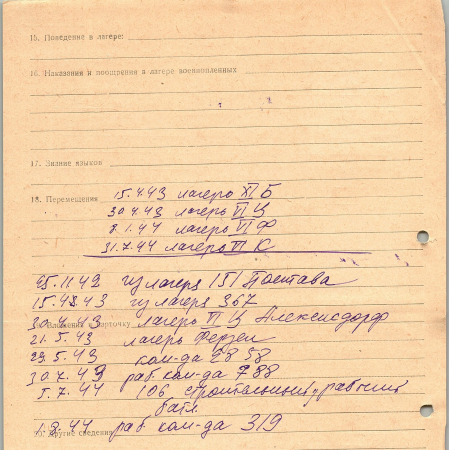 15. Поведение в лагере:
16. Наказания и поощрения в лагере военнопленных
17. Знание языков
18. Перемещения 15.4.43 лагерь XI Б
30.4.43 лагерь VI Ц
8.1.44 лагерь VI Ф
31.7.44 лагерь VI К
25.11.42 из лагеря 151 Постава
15.4.43 из лагеря 367
30.4.43 лагерь VI Ц Алексисдорф
21.5.43 лагерь
29.5.43 ком-да 28 58
30.7.43 раб ком-да 788
5.7.44 106 строительный, рабочий
бат.
1.8.44 раб ком-да 319
20. Другие сведения